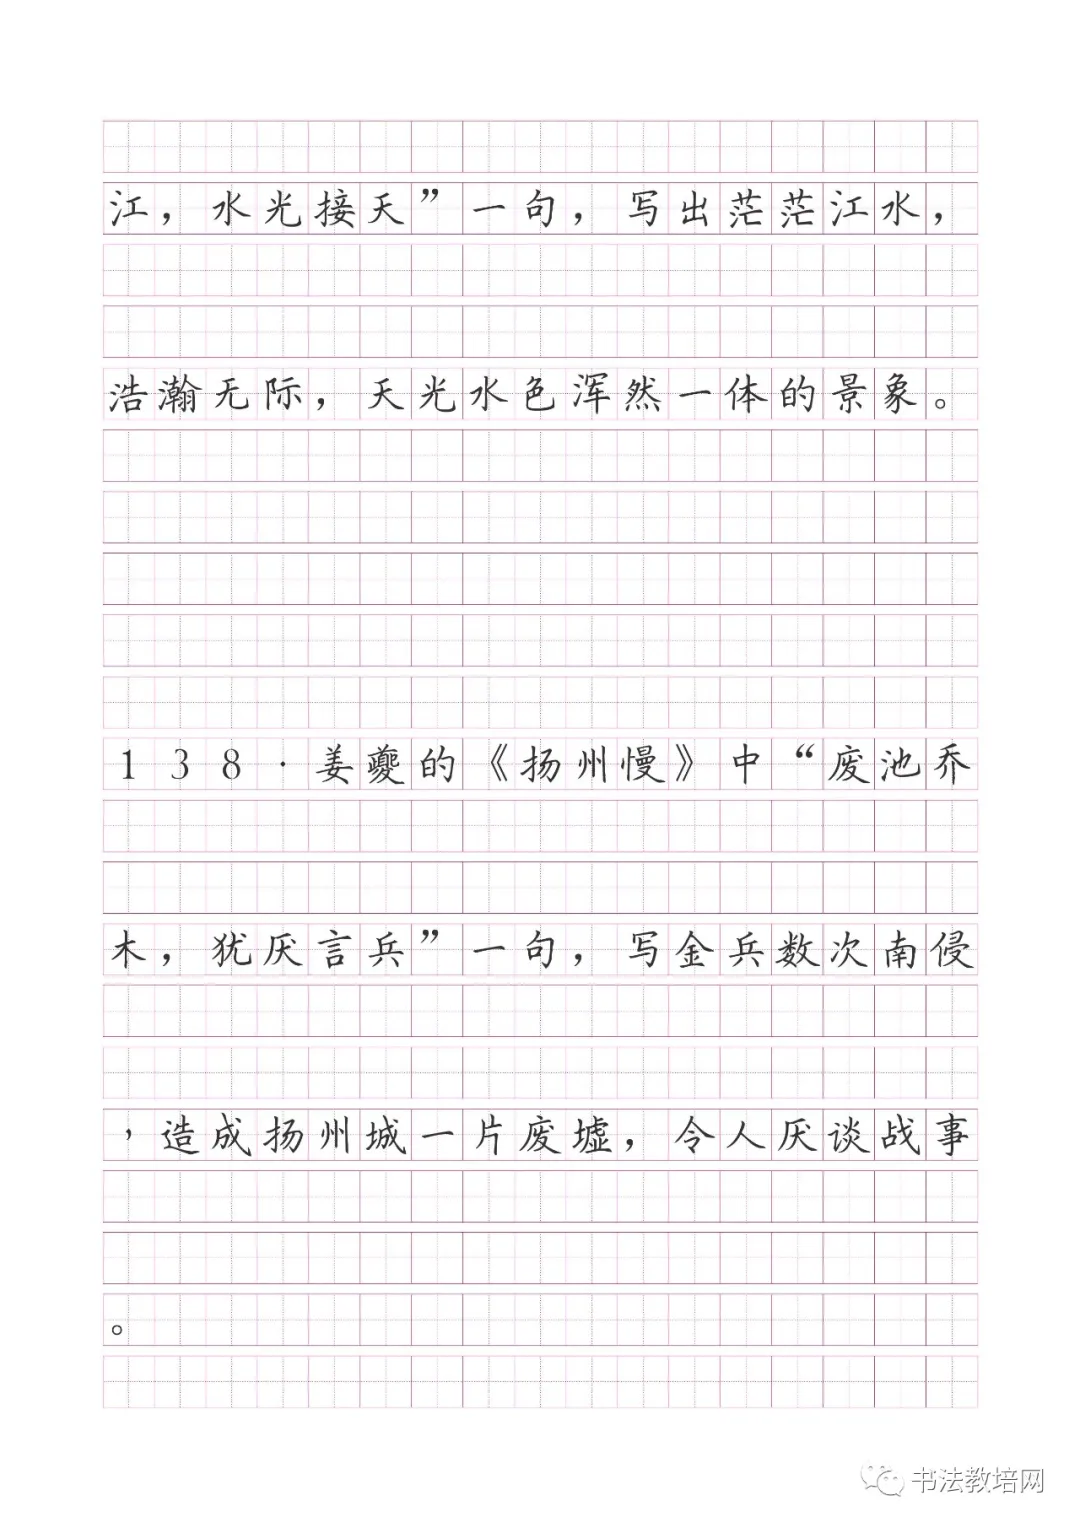 江，水光接天”一句，写出茫茫江水，
浩瀚无际，天光水色浑然一体的景象。
138·姜夔的《扬州慢》中“废池乔
木，犹厌言兵”一句，写金兵数次南侵
，造成扬州城一片废墟，令人厌谈战事
。
书法教培网